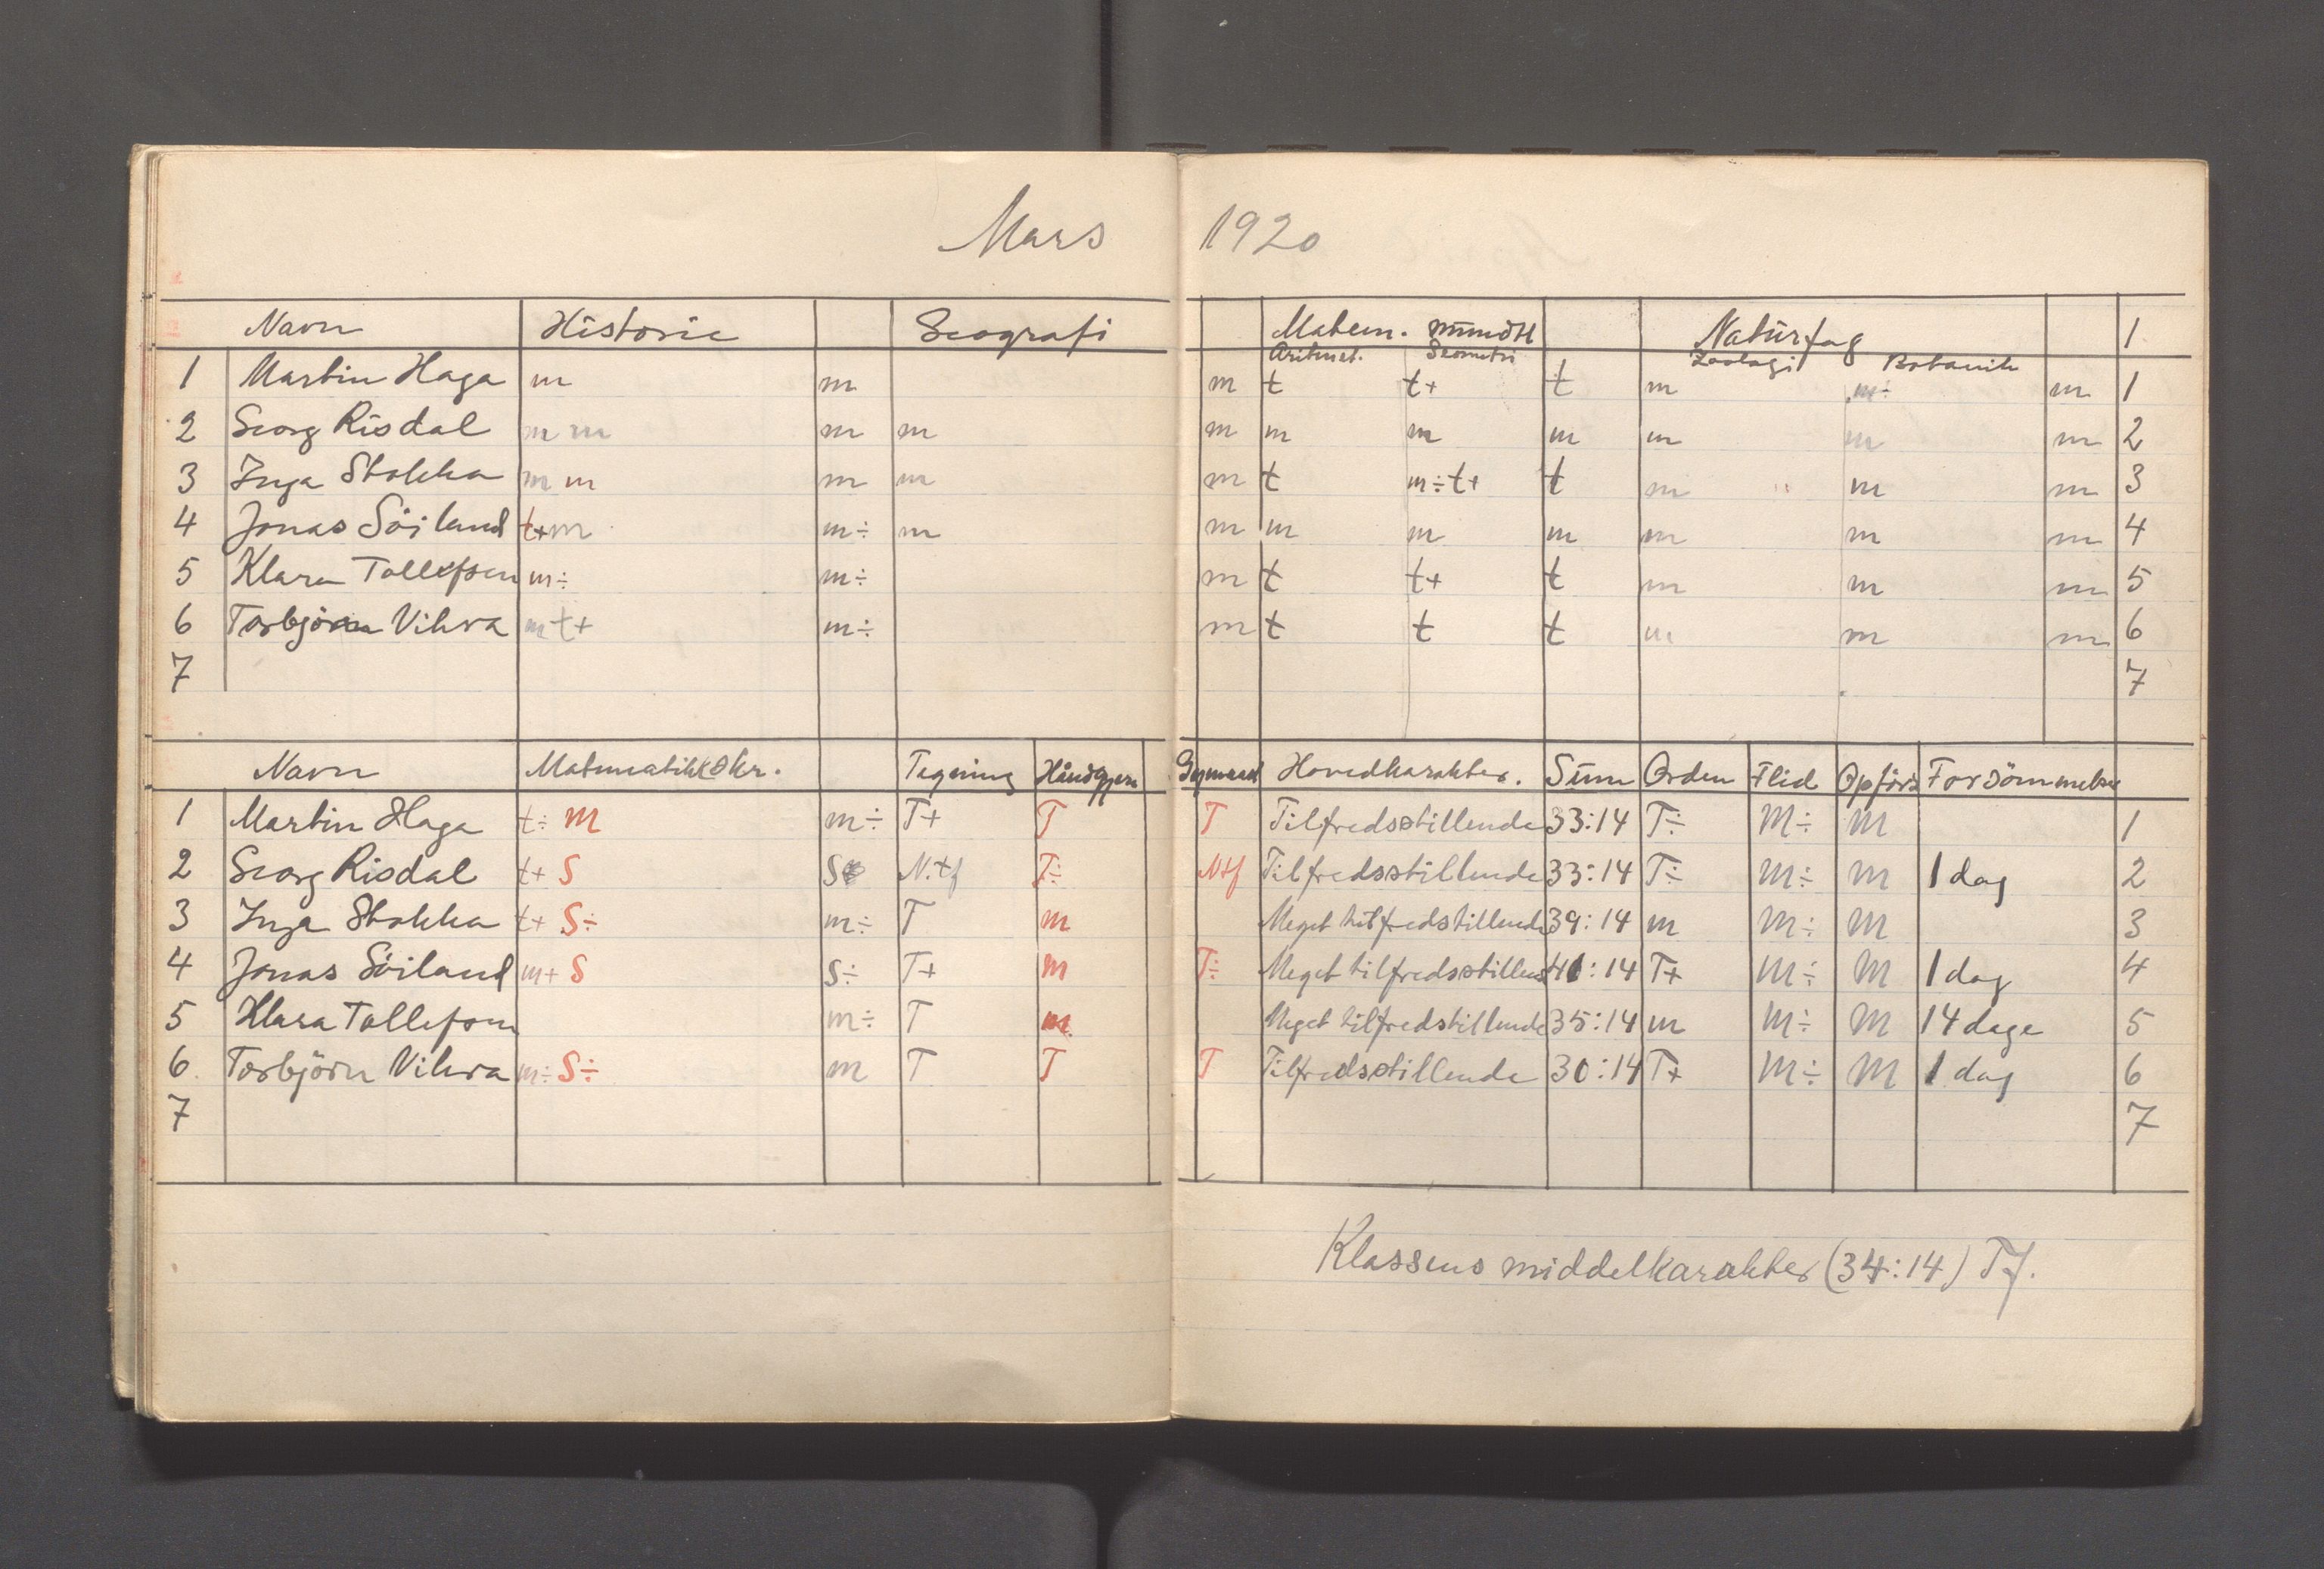 Mars 1920
Navn Historie Geografi Matem. mündtl Natürfag 1
Aritmet. Geometri Zoologi Botanik
1 Martin Haga m m m t t+ t m m÷ m 1
2 Georg Risdal m m m m m m m m m m m 2
3 Inga Stokka m m m m m t m÷t+ t m m m 3
4 Jonas Söiland t+m m÷ m m m m m m m m 4
5 Klara Tollefsen m÷ m÷ m t t+ t m m m 5
6 Torbjörn Vikra m t+ m÷ m t t t m m m 6
7 7
Navn Matematikk skr. Tegning Håndgjern Gymnast Hovedkarakter. Süm Orden Flid Opförs Forsömmelse
1 Martin Haga t÷ M m÷ T+ T T Tilfredsstillende 33:14 T÷ M÷ M 1
2 Georg Risdal t+ S S N.tf T÷ Ntf Tilfredsstillende 33:14 T÷ M÷ M 1 dag 2
3 Inga Stokka t+ S÷ m÷ T m Meget tilfredstillende 39:14 m M÷ M 3
4 Jonas Söiland m+ S S÷ T+ m T÷ Meget tilfredsstillend 41:14 T+ M÷ M 1 dag 4
5 Klara Tollefsen m÷ T m Meget tilfredstillende 35:14 m M÷ M 14 dage 5
6 Torbjörn Vikra m÷ S÷ m T T T Tilfredsstillende 30:14 T+ M÷ M 1 dag 6
7 7
Klassens middelkarakter (34:14) Tf.